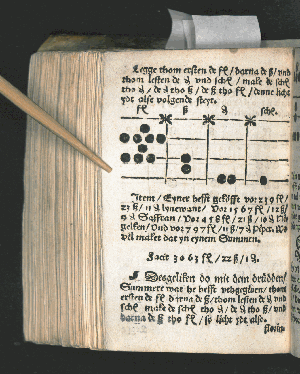 Legge thom ersten de fl / darna de ß / vnd
thom lesten de A vnd schl / make de schl
tho A / de A tho ß / de ß tho fl / denne licht
ydt alse volgende steyt.
fl ß A schl.
Item / Eyner hefft gekofft vor 239 fl /
23 ß / 11 A lynewant / Vor 1567 fl / 12 ß /
A Saffran / Vor 458 fl / 21 ß / 10 A
gelken / Vnd vor 797 fl / 11 ß / 7 A Peper. Wo
vel maket dat yn eynem Summen.
Facit 3063 fl / 22 ß / 1 A.
Desgeliken do mit dem drüdden /
Summere wat he hefft vthgegeuen / thom
ersten de fl darna de ß / thom lesten de A vnd
schl make de schl tho A / de A tho ß / vnd
darna de ß tho fl / so licht ydt alse.